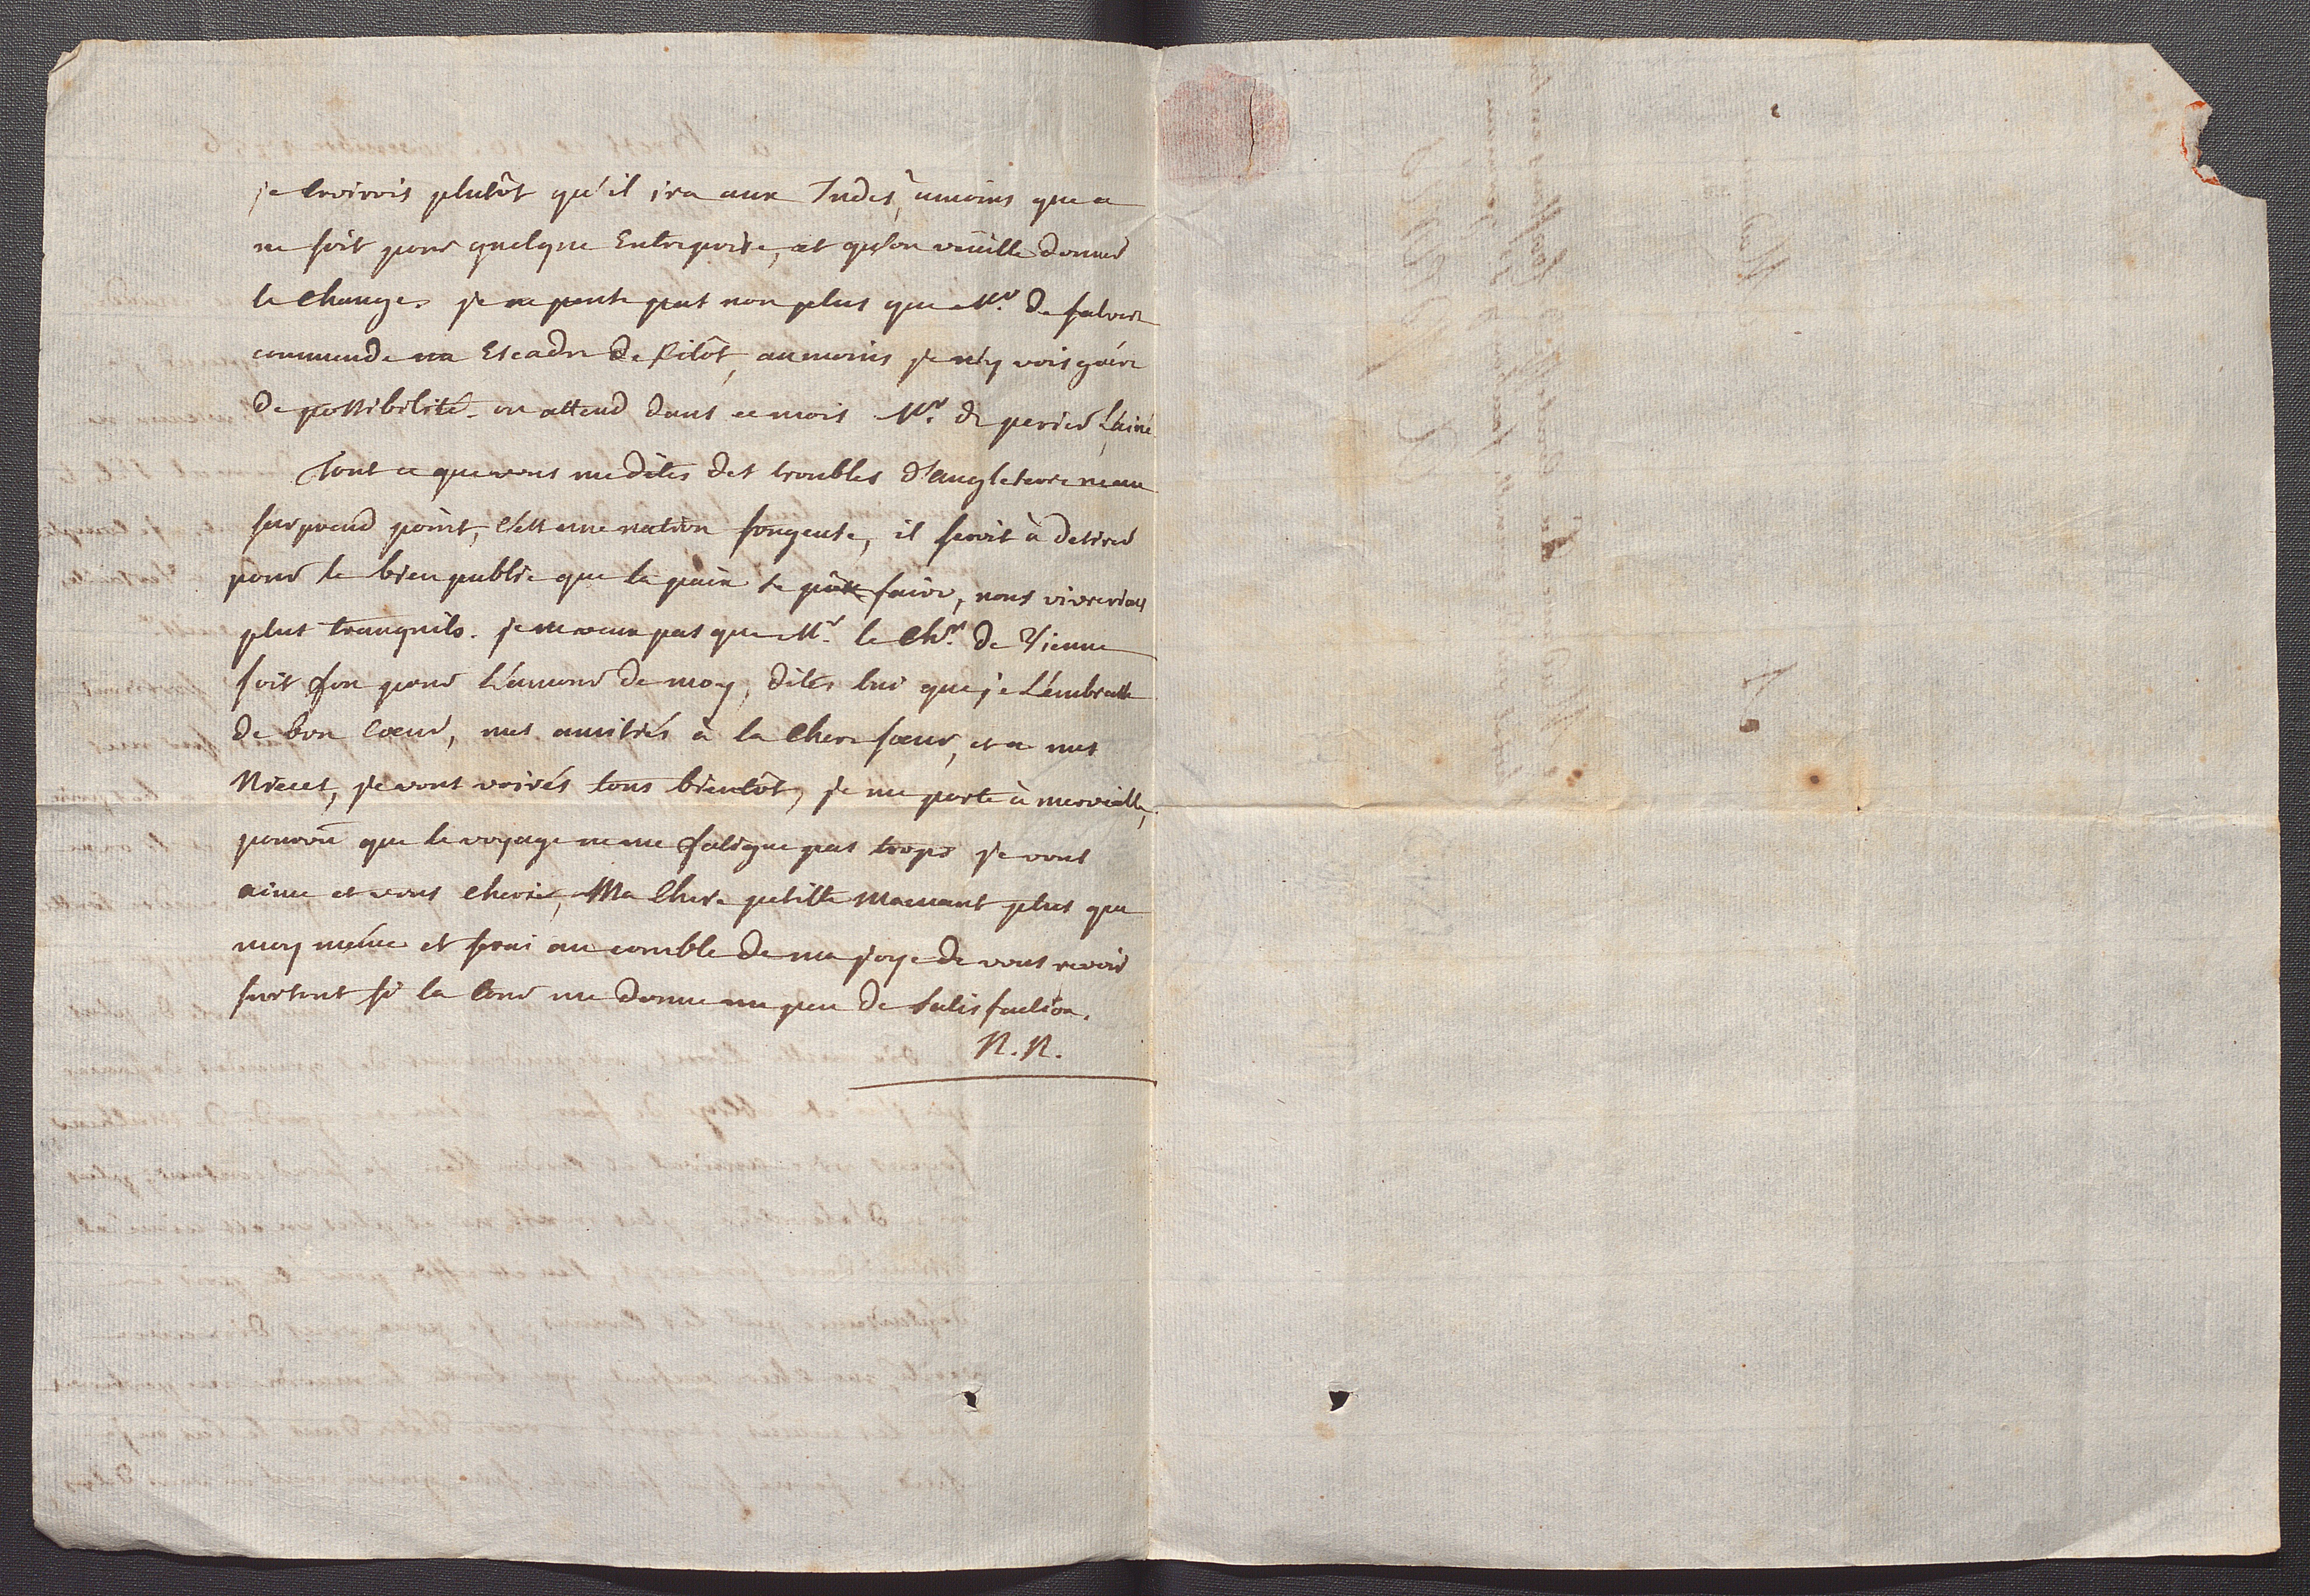 je Croirois plutôt qu'il ira aux Indes, àmoins que ce
ne soit pour quelque Entreprise, et qu'on veüille donner
le Change. je ne pense pas non plus que Mr. de salvert
commende un Escadre de sitôt, aumoins je n'y vois guére
de possibilité. on attend dans ce mois Mr. de perier L'ainé
Tout ce que vous me dites des troubles d'angleterre ne me
surprend point, C'est une nation fougeuse, il seroit à desirer
pour le bien public que la paix se pût faire, nous vivrerions
plus tranquils. je ne veux pas que Mr. le Chr. de Vienne
soit fou pour L'amour de moy, dites lui que je L'émbrasse
de bon Cœur, mes amitiés à la Chere sœur, et a mes
Nieces, je vous voirés tous bientôt, je me porte à merveille,
pourvû que le voyage ne me fatigue pas trops je vous
aime et vous Cheris, Ma Chere petitte Mamant plus que
moy même et serai au comble de ma joye de vous revoir
surtout si la Cour me donne un peu de satisfaction.
N.N.